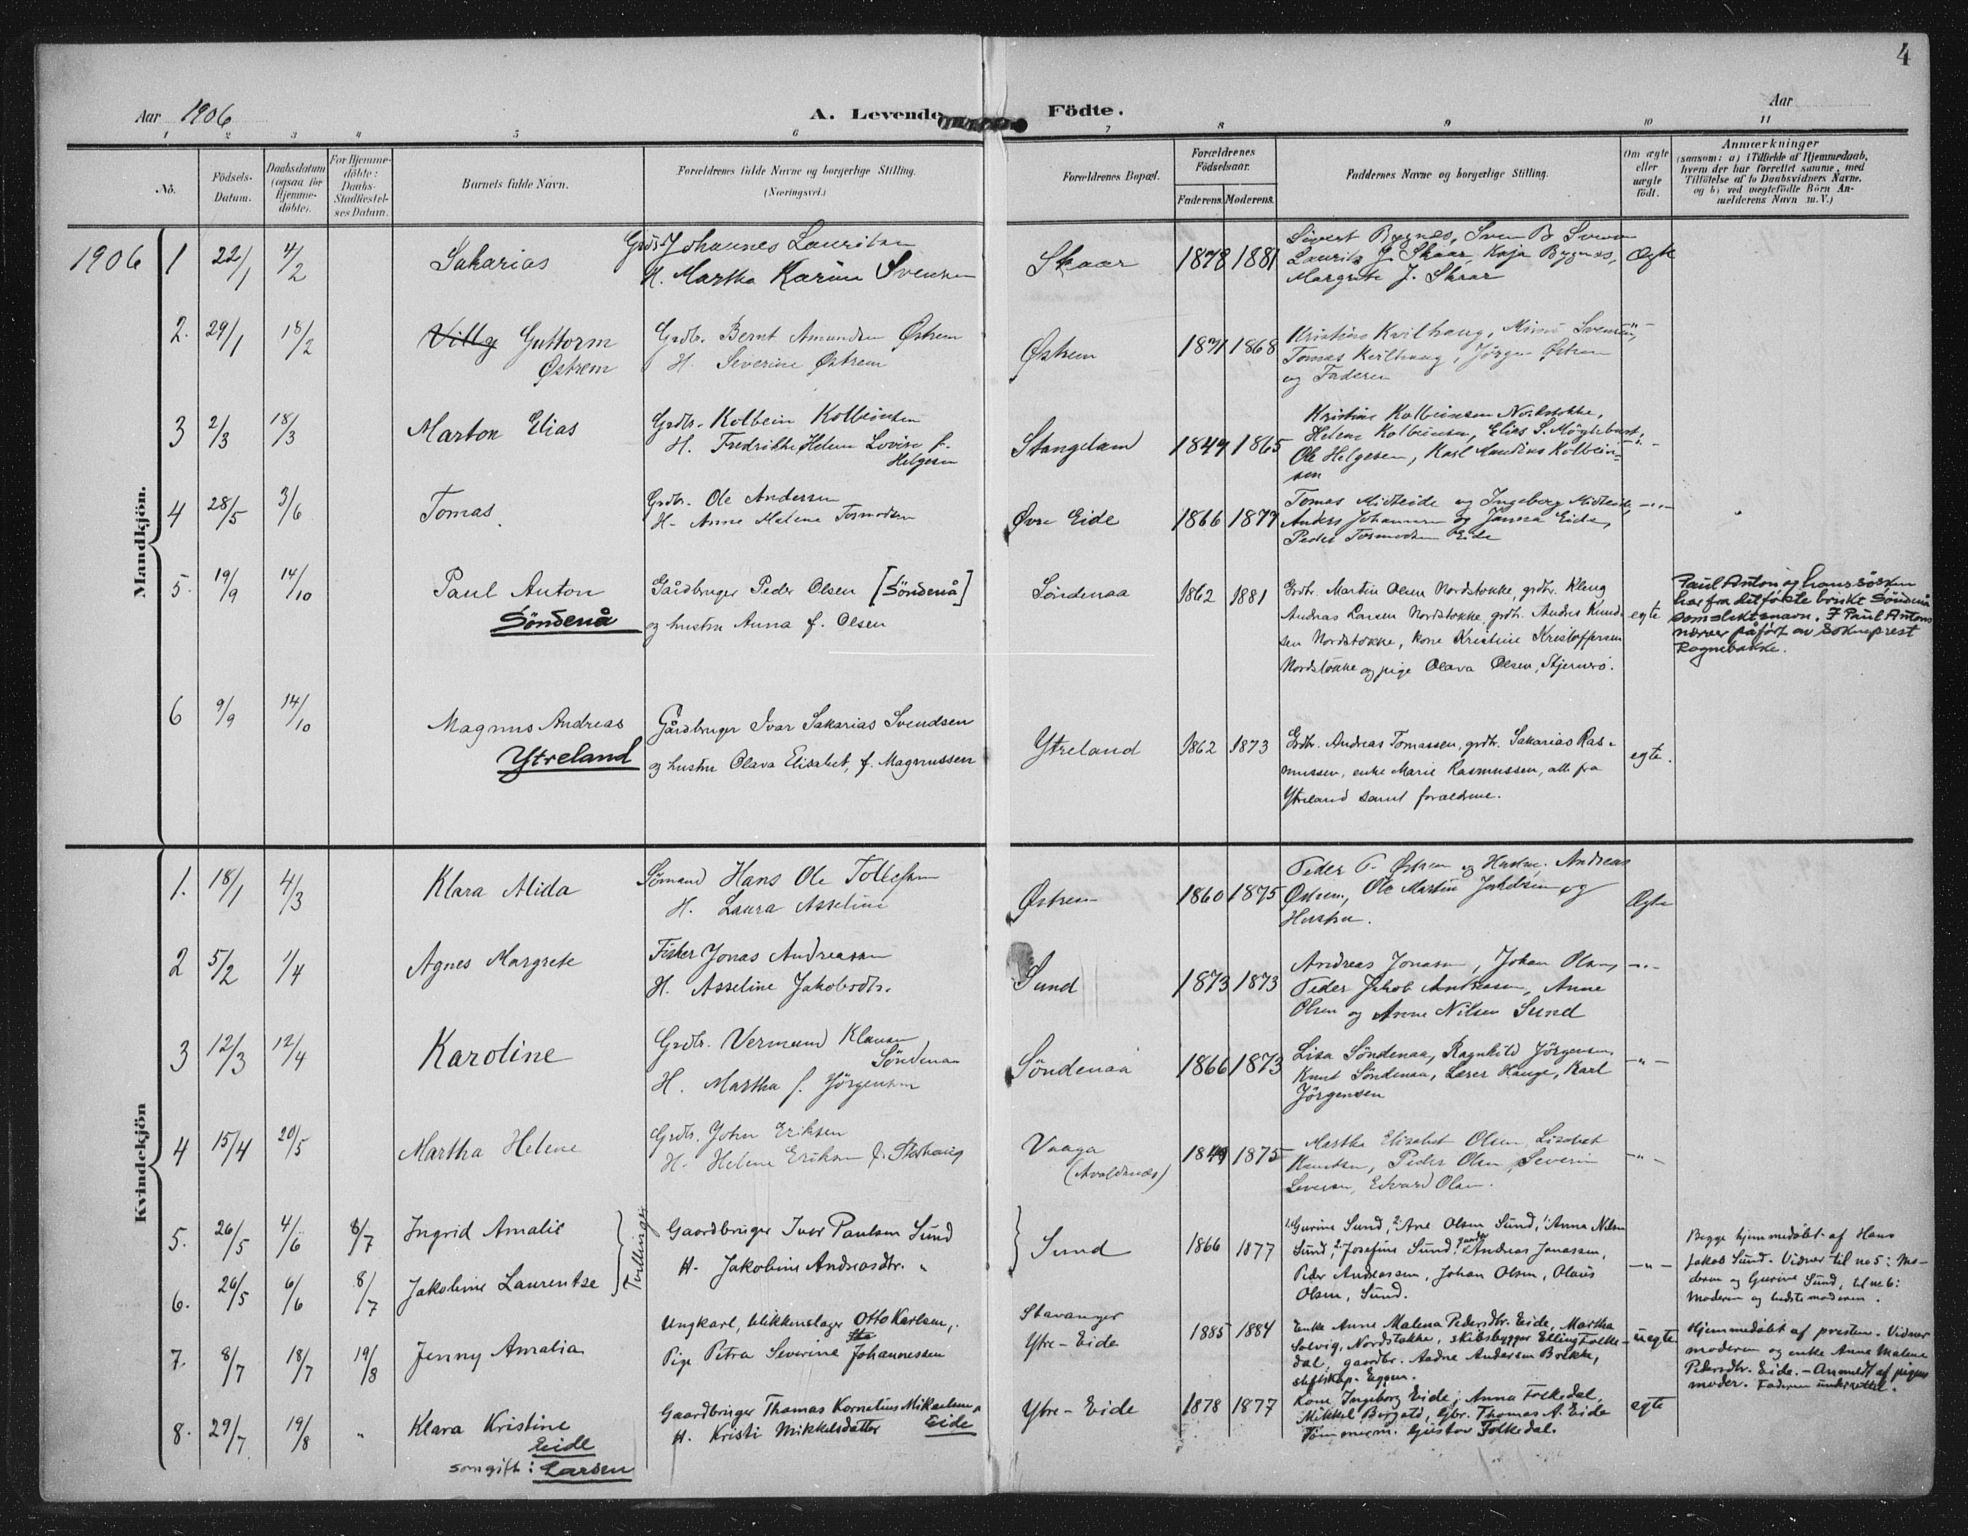 4
Aar 1906
A. Levende Födte.
Aar
1 2 3 4 5 6 7 8 9 10 11
No.
Födsels-Datum.
Daabsdatum (ogsaa for Hjemmedöbte).
For Hjemmedöbte: Daabs-Stadfæstelses Datum.
Barnets fulde Navn.
Forældrenes fulde Navne og borgerlige Stilling. (Næringsvei.)
Forældrenes Bopæl.
Forældrenes Födselsaar.
Faderens. Moderens.
Faddernes Navne og borgerlige Stilling.
Om ægte eller uægte födt.
Anmærkninger
(saasom: a) i Tilfælde af Hjemmedaab, hvem der har forrettet samme, med Tilföielse af to Daabsvidners Navne, og b) ved uægtefödte Börn Anmelderens Navn m. V.)
Mandkjön.
1906 1 22/1 4/2
Sakarias
Grdbr. Johannes Lauritsen
H. Martha Karine Svensen
Skaar
1878 1881
Sivert Bygnæs, Sven B
Laurits J. Skaar, Kaja Bygnæs,
Margrete J. Skaar
Ægte
2. 29/1 18/2
Villy Guttorm
Østrem
Grdbr. Bernt Amundsen Østrem
H. Severine Østrem
Østrem
1871 1868
Kristine Kvilhaug,
Tomas Kvilhaug, Jörgen Østrem
og Faderen
3 2/3 18/3
Marton Elias
Grdbr. Kolbein Kolbeinsen
H. Fredrikke Helene Lovise f.
Helgesen
Stangeland
1847 1865
Kristine Kolbeinsen Nordstokke,
Helene Kolbeinsen, Elias S.
Ole Helgesen, Karl Maudius Kolbein-
sen
4 28/5 3/6
Tomas
Grdbr. Ole Andersen
H. Anne Malene Tormodsen
Øvre Eide
1866 1877
Tomas Midteide og Ingeborg Midteide,
Anders Johannesen og Janna Eide,
Peder Tormodsen Eide
5. 19/9 14/10
Paul Anton
Söndenå
Gårdbruger Peder Olsen [Söndenå]
og hustru Anna f. Olsen
Söndenaa
1862 1881
Grdbr. Martin Olsen Nordstokke, grdbr. Kleng
Andreas Larsen Nordstokke, grdbr. Anders Knud-
sen Nordstokke, kone Kristine Kristoffersen
Nordstokke og pige Olava Olsen, Stjernerö.
egte
Paul Anton og hans sösken
har fra ditfökte brukt Söndenå
som slektsnavn. I Paul Antons
nærver påfört av Sokneprest
Rognebakke.
6 9/9 14/10
Magnus Andreas
Ytreland
Gårdbruger Ivar Sakarias Svendsen
og hustru Olava Elisabet, f. Magnussen
Ytreland
1862 1873
Grdbr. Andreas Tomassen, grdbr. Sakarias Ras-
mussen, enke Marie Rasmussen, alle fra
Ytreland samt forældrene.
egte.
Kvindekjön
1. 18/1 4/3
Klara Alida
Sömand Hans Ole Tollefsen
H. Laura Asseline
Østrem
1860 1875
Peder Østrem og Hustru. Andreas
Østrem, Ole Martin Jakobsen og
Hustru.
Ægte
2 5/2 1/4
Agnes Margrete
Fisker Jonas Andreasen
H. Asseline Jakobsdtr.
Sund
1873 1873
Andreas Jonasen, Johan Olsen,
Peder Jakob Andreasen, Anne
Olsen og Anne Nilsen Sund
3 12/3 12/4
Karoline
Grdbr. Vermund Klausen
Söndenaa
H. Martha f. Jörgensen
Söndenaa
1866 1873
Lisa Söndenaa, Ragnhild Jörgensen,
Knut Söndenaa, Lærer Hauge, Karl
Jörgensen
4 15/4 20/5
Martha Helene
Grdbr. John Eriksen
H. Helene Eriksen f.
Vaaga
(Avaldsnæs)
1849 1875
Martha Elisabet Olsen, Lisabet
Knutsen, Peder Olsen, Severin
Seversen, Edvard Olsen.
5. 26/5 4/6 8/7
Ingrid Amalie
Tvillinger
Gaardbruger Iver Paulsen Sund
H. Jakobine Andreasdtr. "
Sund
1866 1877
1. Gurine Sund, 2. Ane Olsen Sund, 1. Anna Nilsen
Sund, 2. Josefine Sund, Andreas Jonassen,
Peder Andreassen, Johan Olsen, Olaus
Olsen, Sund.
Begge hjemmedøbt af Hans
Jakob Sund. Vidner til no 5: Mo-
deren og Gurine Sund, til no 6:
Moderen og bedstemoderen.
6. 26/5 6/6 8/7
Jakobine Laurentse
7. 8/7 18/7 19/8
Jenny Amalia
Ungkarl, blikkenslager Otto Karlsen,
Pige Petra Severine Johannessen
Stavanger
Ytre-Eide
1885 1884
Enke Anne Malena Pedersdtr. Eide, Martha
Solvig, Nordstokke, skibsbygger Elling Folke-
dal, gaardbr. Aadne Andersen Brekke,
stiftskap. Eggen.
uegte
Hjemmedøbt af presten. Vidner
moderen og enke Anne Malene
Pedersdtr. Eide. - Anmeldt af pigens
moder. Faderen underrettet.
8. 29/7 19/8 "
Klara Kristine
Eide
som gift: Larsen
Gaardbruger Thomas Kornelius Mikaelsen
H. Kristi Mikkelsdatter Eide
Ytre-Eide
1878 1877
Kone Ingeborg Eide, Anna Folkedal,
Mikkel Borgatö, Gbr. Thomas A. Eide
Tömmerm. Gustav Folkedal.
egte